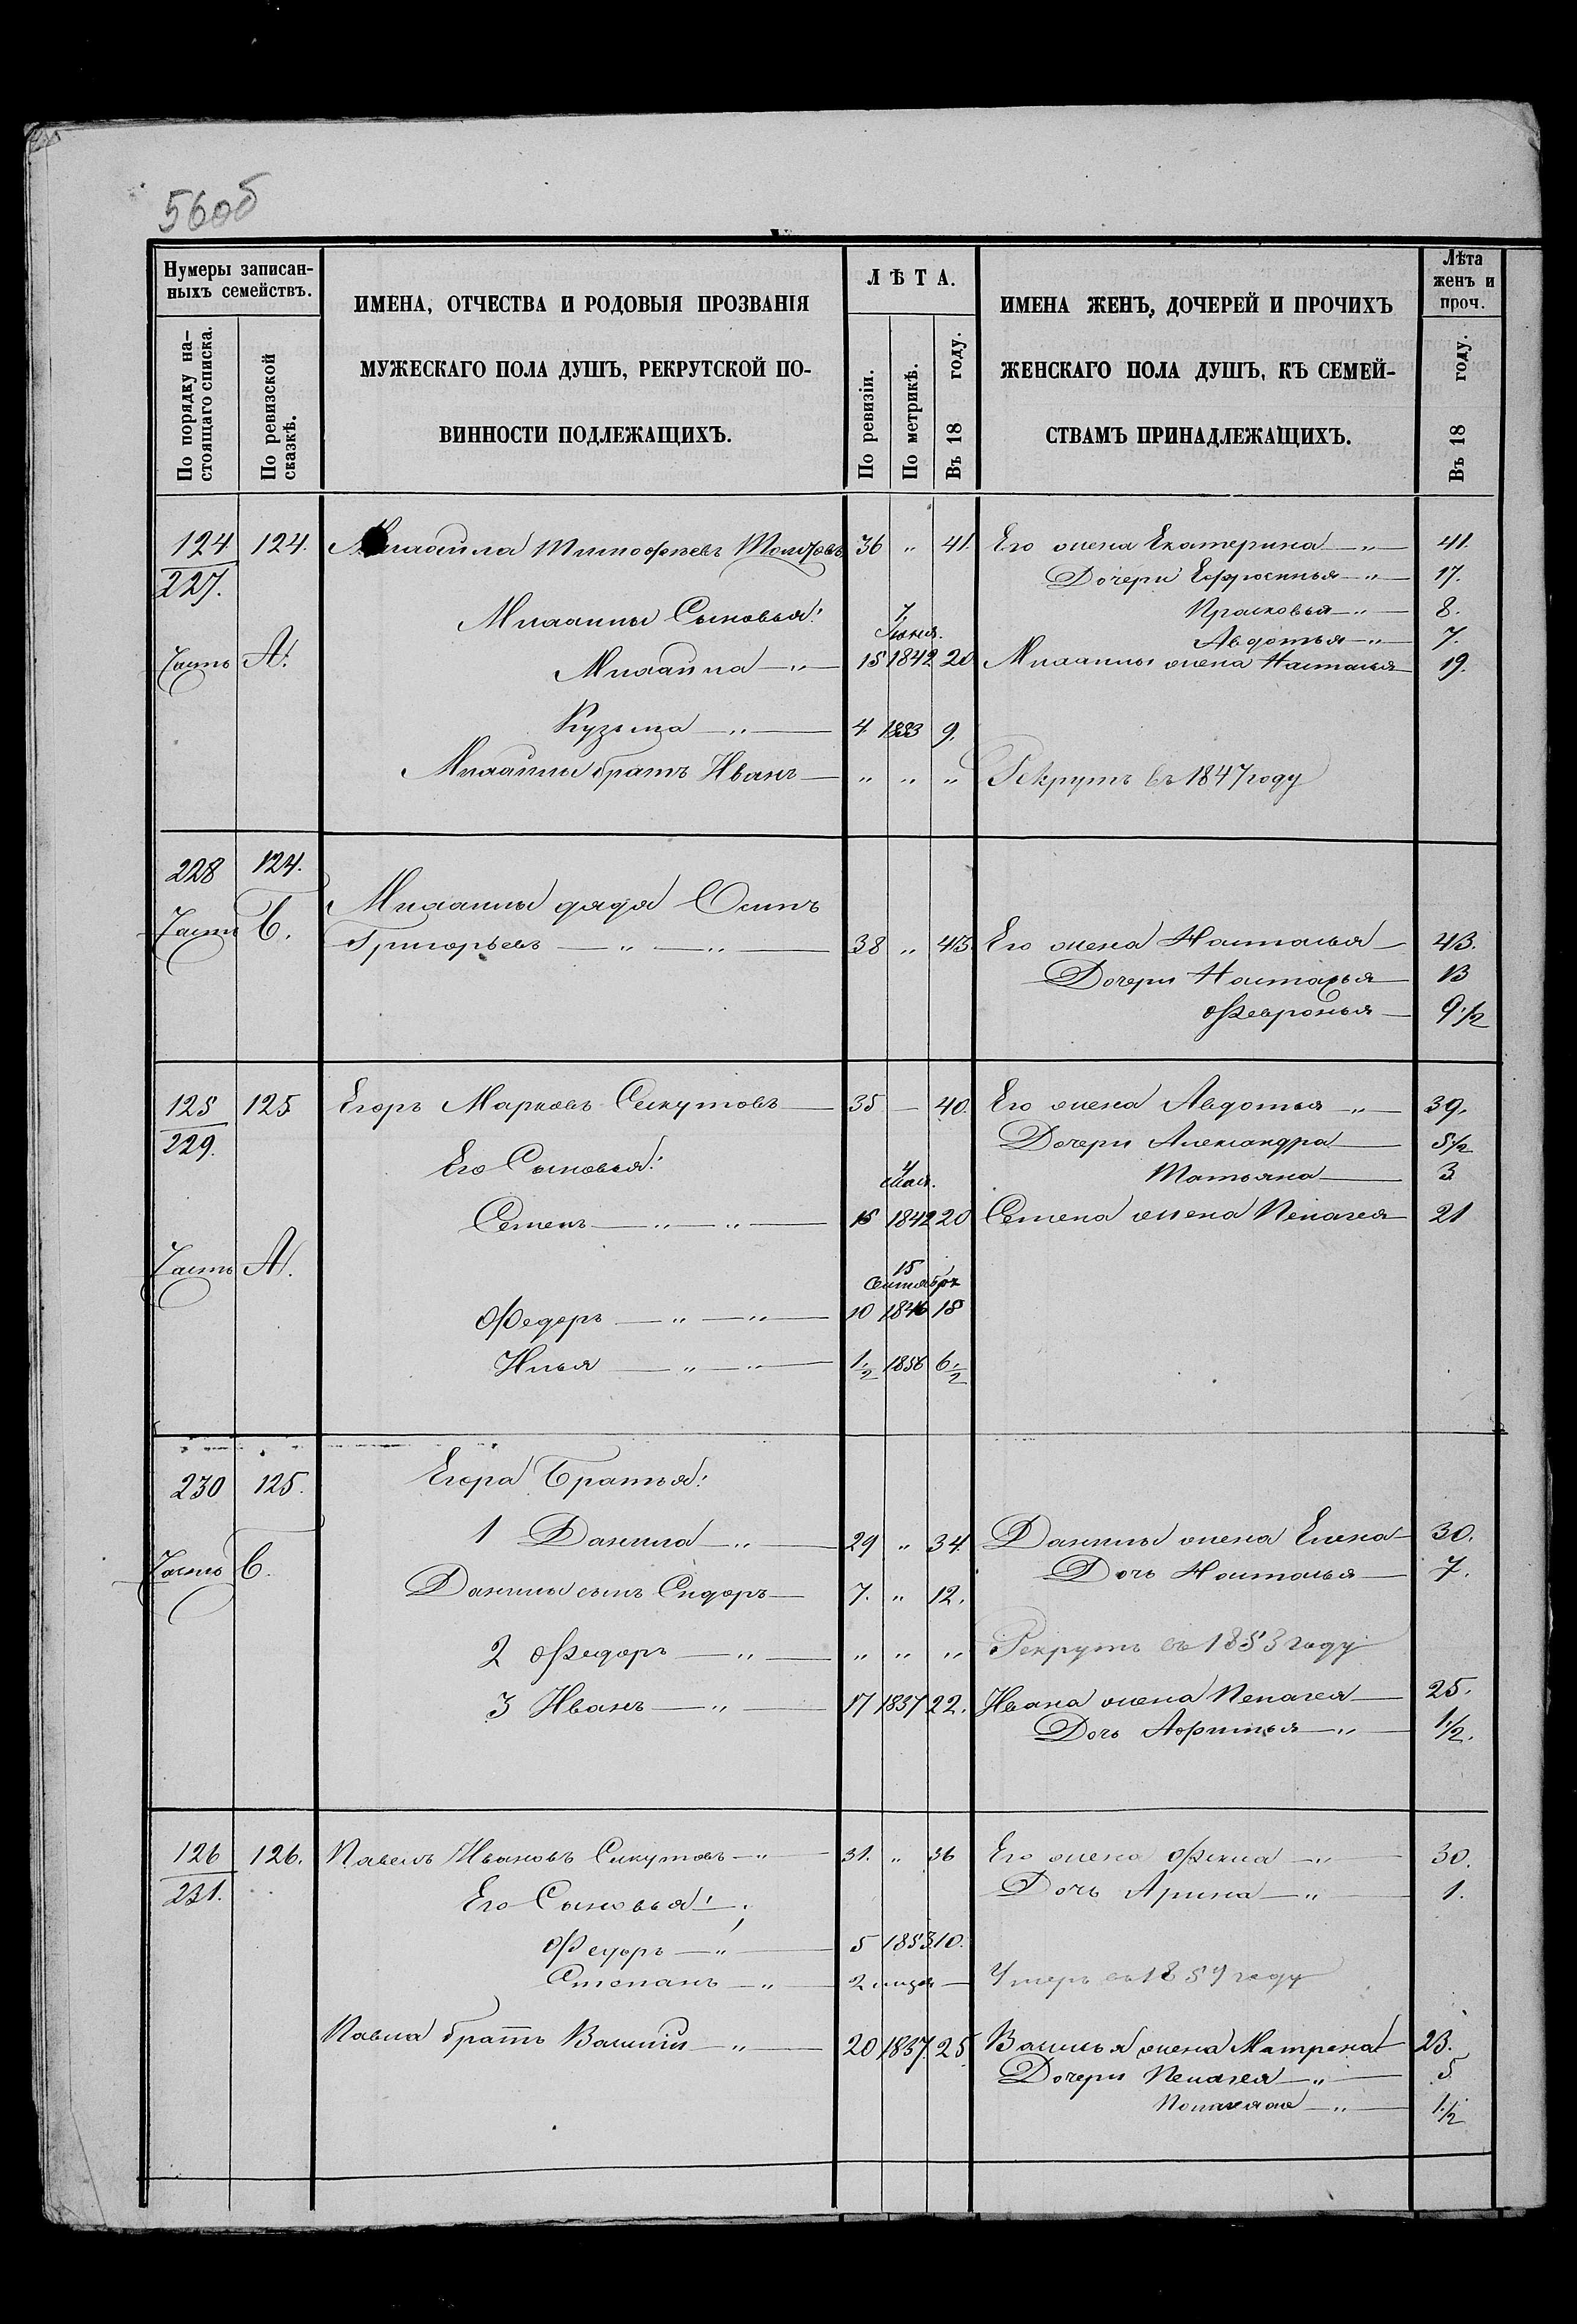 56об
Нумеры записан-
ныхъ семействъ.
По порядку на-
стоящаго списка.
По ревизской
сказкѣ.
ИМЕНА, ОТЧЕСТВА И РОДОВЫЯ ПРОЗВАНІЯ
МУЖЕСКАГО ПОЛА ДУШЪ, РЕКРУТСКОЙ ПО-
ВИННОСТИ ПОДЛЕЖАЩИХЪ.
ЛѢТА.
По ревизіи.
По метрикѣ.
Въ 18 году.
ИМЕНА ЖЕНЪ, ДОЧЕРЕЙ И ПРОЧИХЪ
ЖЕНСКАГО ПОЛА ДУШЪ, КЪ СЕМЕЙ-
СТВАМЪ ПРИНАДЛЕЖАЩИХЪ.
Лѣта
женъ и
проч.
Въ 18 году.
124 124. Михайла Тимофѣевъ 36 „ 41. Его жена Екатерина — „ — 41.
227. Дочери Ефросинья — „ — 17.
Прасковья — „ — 8.
Михайлы Сыновья: 7, Іюня. Авдотья — „ — 7.
Часть А. Михайла — „ — 15 1842 20 Михайлы жена Настасья 19.
Кузьма — „ — 4 1853 9.
Михайлы братъ Иванъ — „ „ „ Рекрутъ въ 1847 году
228 124.
Часть Б. Михайлы дядя Осипъ
Григорьевъ — „ — „ — 38 „ 43. Его жена Настасья — 43.
Дочери Настасья 13
Февронья — 9 1/2
125 125 Егоръ Марковъ Секутовъ — 35 — 40. Его жена Авдотья — „ — 39.
229. Дочери Александра — 5 1/2
Его Сыновья: 4 Мая. Татьяна — 3
Семенъ — „ — „ — 15 1842 20 Семена жена Пелагея 21
Часть А. 15 Сентября
Федоръ — „ — „ — 10 1846 15
Илья — „ — „ — 1/2 1856 6 1/2
230 125. Егора Братья:
1 Данила — „ — 29 „ 34. Данилы жена Елена — 30.
Часть Б. Дочь Настасья — 7.
Данилы сынъ Сидоръ — 7. „ 12.
2 Федоръ — „ — „ „ „ Рекрутъ въ 1853 году
3 Иванъ — „ — 17 1837 22. Ивана жена Пелагея — 25.
Дочь Афимья — „ — 1/2.
126 126. Павелъ Ивановъ Секутовъ — „ — 31. „ 36 Его жена Фекла — „ — 30.
231. Дочь Арина — „ — 1.
Его Сыновья:
Федоръ — „ — 5 1853 10.
Степанъ — „ — 2 недѣл — Умеръ въ 1859 году
Павла братъ Василій — „ — 20 1837. 25. Василья жена Матрена 23.
Дочери Пелагея — „ — 5
1/2